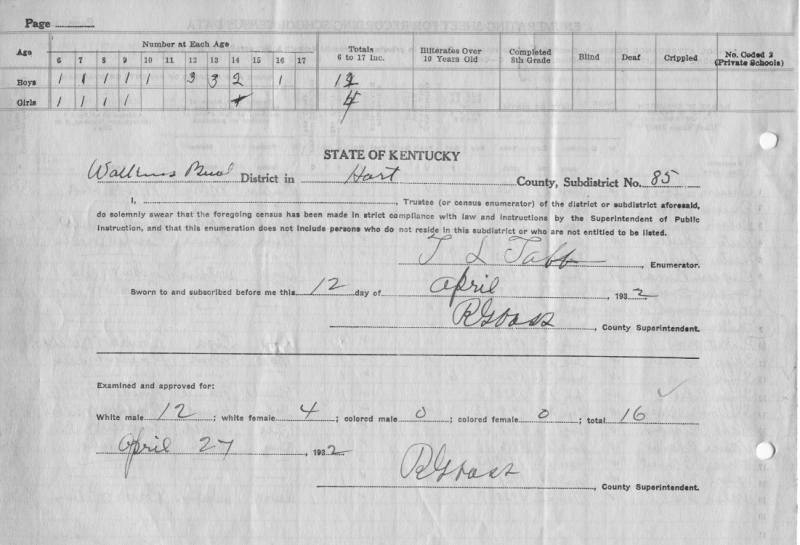 Page
Number at Each Age
Age 6 7 8 9 10 11 12 13 14 15 16 17 Totals 6 to 17 Inc. Illiterates Over 10 Years Old Completed 8th Grade Blind Deaf Crippled No. Coded 2 (Private Schools)
Boys 1 1 1 1 1 3 3 2 1 12
Girls 1 1 1 1 4
STATE OF KENTUCKY
District in Hart County, Subdistrict No. 85
I, , Trustee (or census enumerator) of the district or subdistrict aforesaid,
do solemnly swear that the foregoing census has been made in strict compliance with law and instructions by the Superintendent of Public
Instruction, and that this enumeration does not include persons who do not reside in this subdistrict or who are not entitled to be listed.
T L Tabb, Enumerator.
Sworn to and subscribed before me this 12 day of April, 1932
, County Superintendent.
Examined and approved for:
White male 12; white female 4; colored male 0; colored female 0; total 16
April 27, 1932
, County Superintendent.